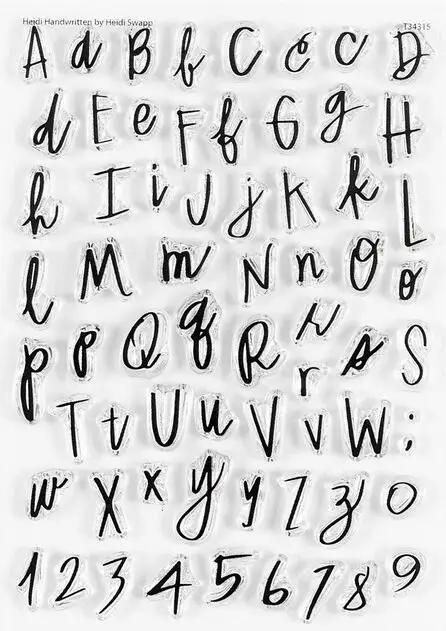 Heidi Handwritten by Heidi Swapp T34315
A a B b C c C D
d E e F f G g H
h I i J j K k L
l M m N n O o
p p Q q R r r s S
T t U u V v W ;
w X x y y Z z 0
1 2 3 4 5 6 7 8 9